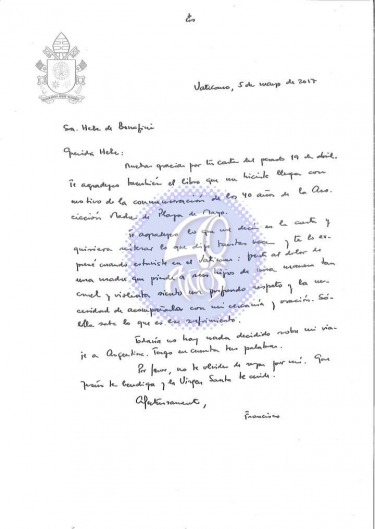 Vaticano, 5 de mayo de 2017
Sra. Hebe de Bonafini
Querida Hebe:
Muchas gracias por tu carta del pasado 19 de abril.
Te agradezco también el libro que me hiciste llegar con
motivo de la conmemoración de los 40 años de la Aso-
ciación Madres de Plaza de Mayo.
Te agradezco lo que me decís en la carta y
quisiera reiterar lo que dije tantas veces y te lo ex-
presé cuando estuviste en el Vaticano: frente al dolor de
una madre que pierde a sus hijos de una manera tan
cruel y violenta siento un profundo respeto y la ne-
cesidad de acompañarla con mi cercanía y oración. Só-
lo ella sabe lo que es ese sufrimiento.
Todavía no hay nada decidido sobre mi via-
je a Argentina. Tengo en cuenta tus palabras.
Por favor, no te olvides de rezar por mí. Que
Jesús te bendiga y la Virgen Santa te cuide.
Afectuosamente,
Francisco